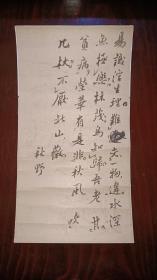 易識浮生理難教一物違水深
魚極樂林茂鳥知歸吾老甘
貧病榮華有是非秋風吹
几杖不厭北山薇
秋野